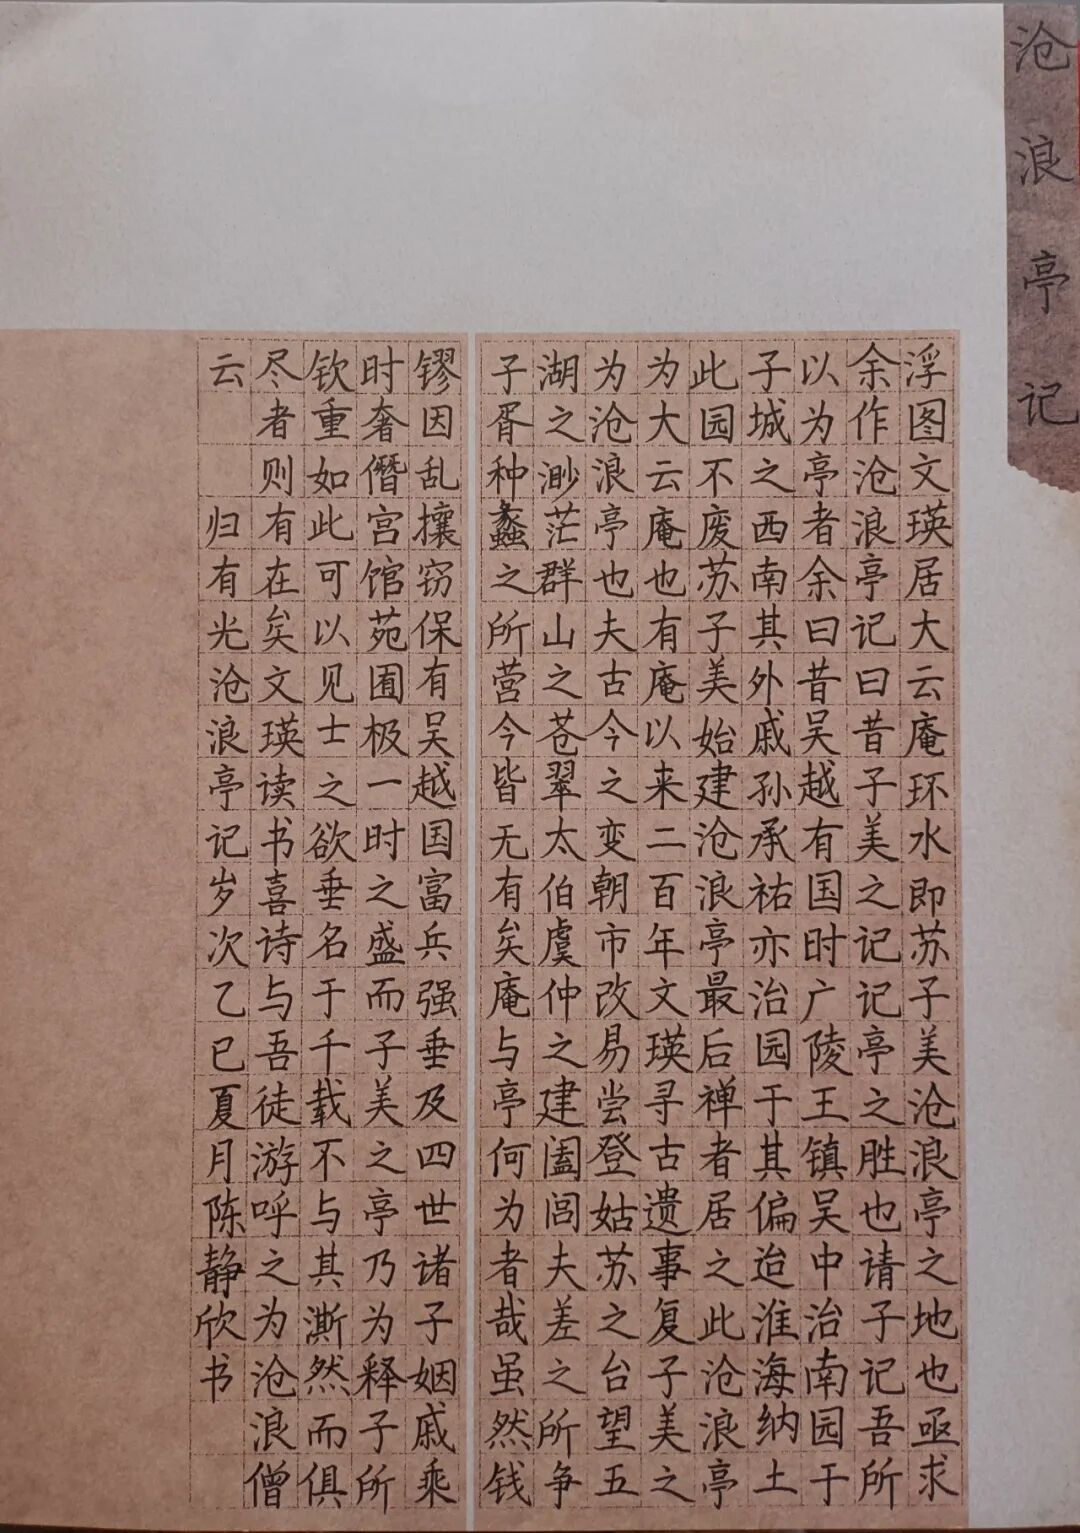 沧浪亭记
浮图文瑛居大云庵环水即苏子美沧浪亭之地也亟求
余作沧浪亭记曰昔子美之记记亭之胜也请子记吾所
以为亭者余曰昔吴越有国时广陵王镇吴中治南园于
子城之西南其外戚孙承祐亦治园于其偏迨淮海纳土
此园不废苏子美始建沧浪亭最后禅者居之此沧浪亭
为大云庵也有庵以来二百年文瑛寻古遗事复子美之
为沧浪亭也夫古今之变朝市改易尝登姑苏之台望五
湖之渺茫群山之苍翠太伯虞仲之建阖闾夫差之所争
子胥种蠡之所营今皆无有矣庵与亭何为者哉虽然钱
镠因乱攘窃保有吴越国富兵强垂及四世诸子姻戚乘
时奢僭宫馆苑囿极一时之盛而子美之亭乃为释子所
钦重如此可以见士之欲垂名于千载不与其澌然而俱
尽者则有在矣文瑛读书喜诗与吾徒游呼之为沧浪僧
云 归有光沧浪亭记岁次乙巳夏月陈静欣书